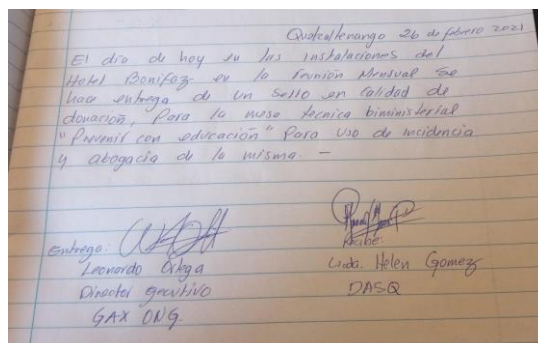 Quetzaltenango 26 de febrero 2021
El día de hoy en las instalaciones del
Hotel Bonifaz en la reunión Mensual se
hace entrega de un Sello en calidad de
donación, Para la mesa tecnica biministerial
"Prevenir con educación" Para uso de incidencia
y abogacia de la misma. —
Entrega:
Leonardo Ortega
Director Ejecutivo
GAX ONG.
Recibe:
Licda. Helen Gomez
DASQ